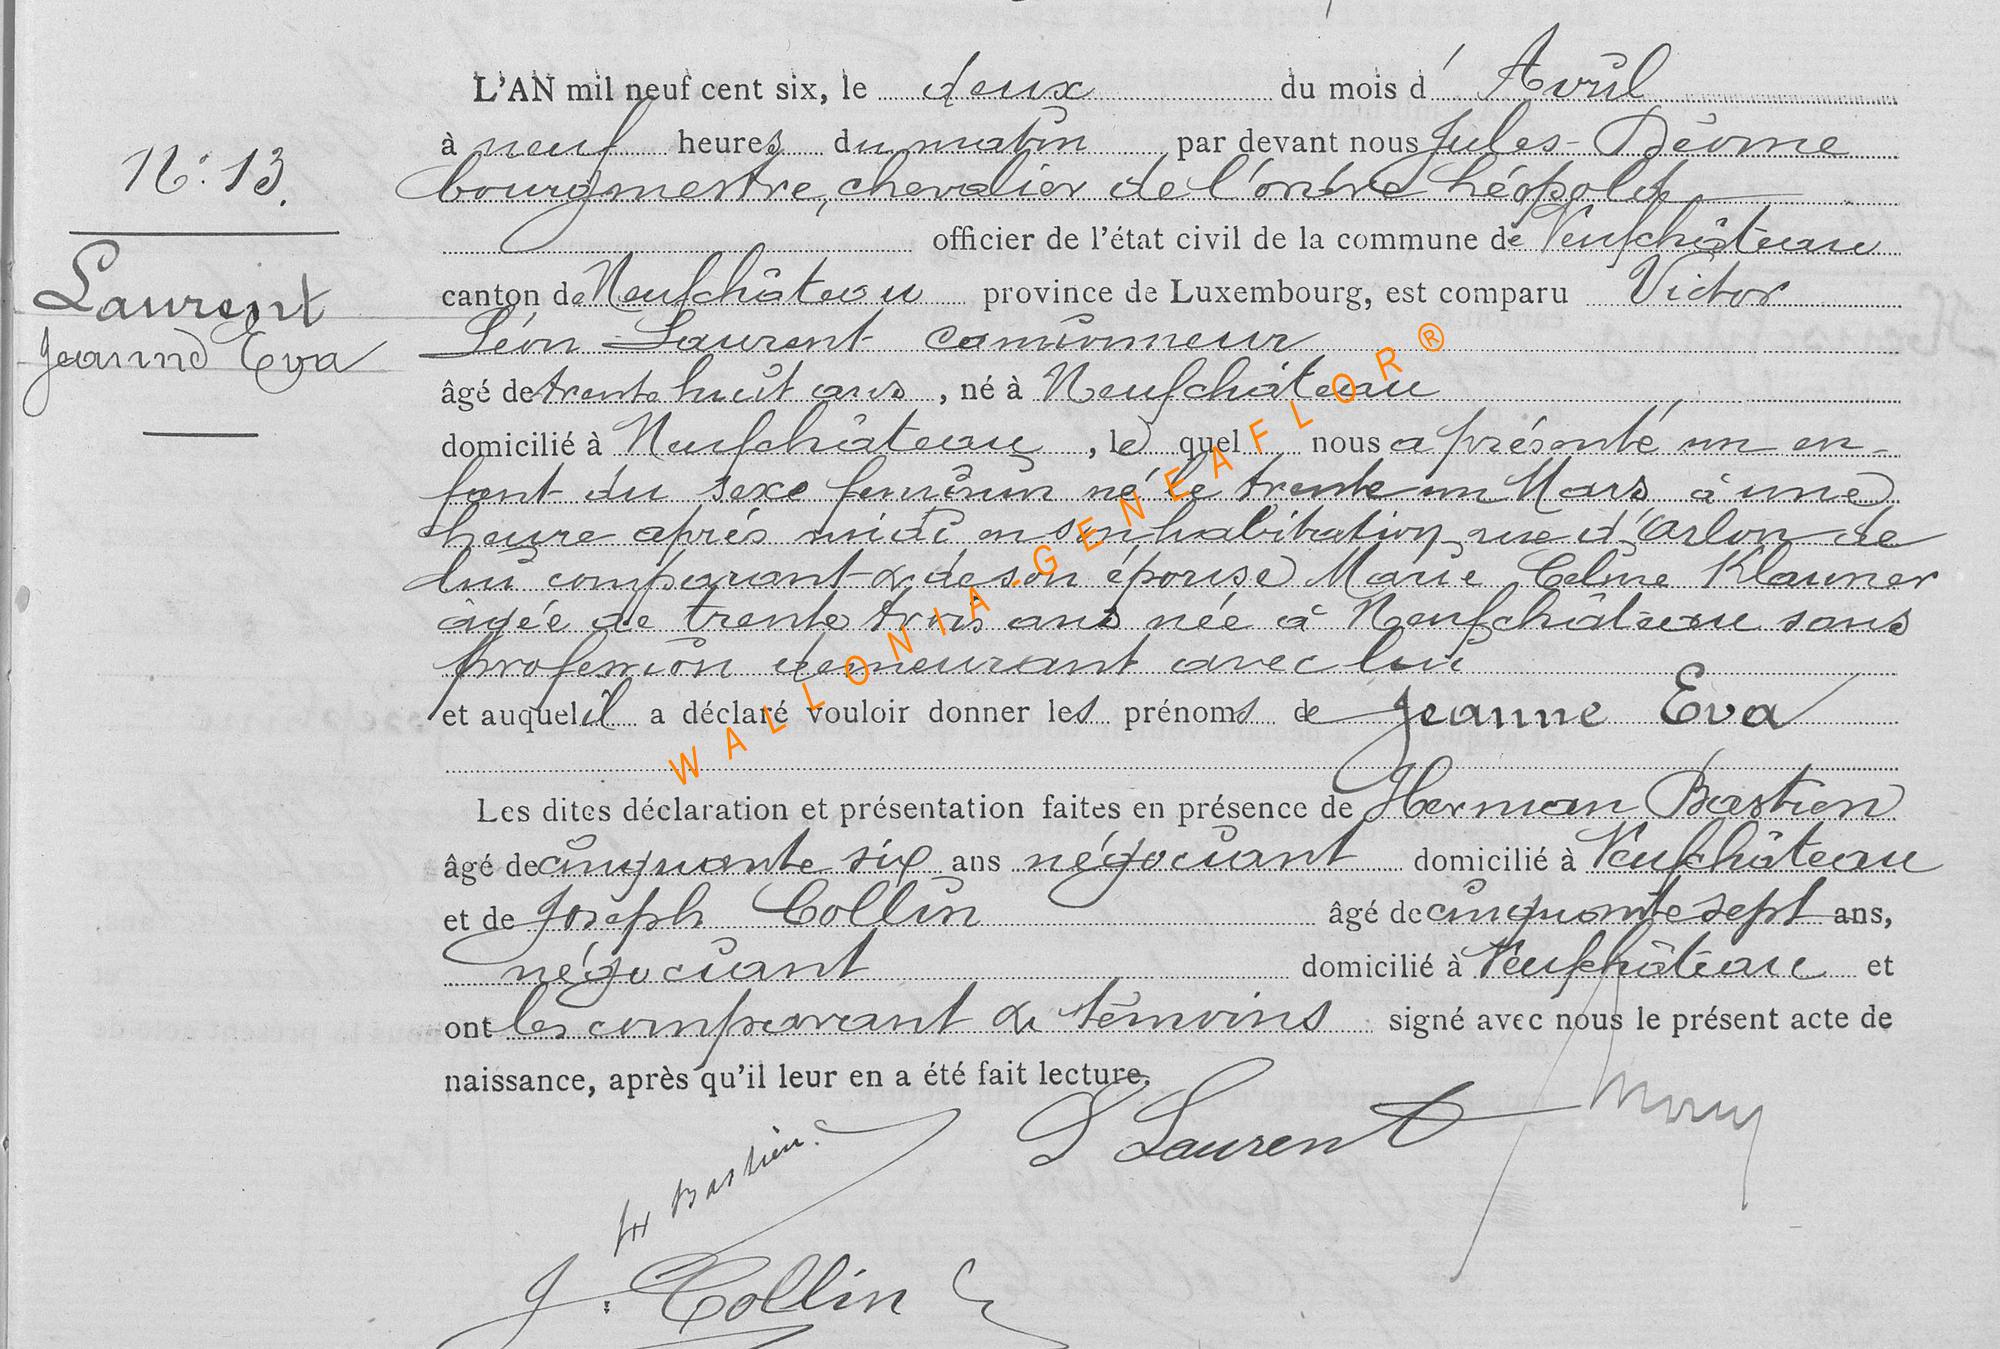 L'AN mil neuf cent six, le deux du mois d' Avril
à neuf heures du matin par devant nous Jules
bourgmestre, chevalier de l'ordre Léopold
officier de l'état civil de la commune de Neufchâteau
canton de Neufchâteau province de Luxembourg, est comparu Victor
Léon Laurent camionneur
âgé de trente huit ans, né à Neufchâteau
domicilié à Neufchâteau, le quel nous a présenté un en-
fant du sexe feminin né le trente un Mars à une
heure après midi en son habitation rue d'Arlon de
lui comparant & de son épouse Marie Celine Klauner
âgée de trente trois ans née à Neufchâteau sans
profession demeurant avec lui
et auquel il a déclaré vouloir donner les prénoms de Jeanne Eva
Les dites déclaration et présentation faites en présence de Herman Bastien
âgé de cinquante six ans négociant domicilié à Neufchâteau
et de Joseph Collin âgé de cinquante sept ans,
négociant domicilié à Neufchâteau et
ont les comparant & témoins signé avec nous le présent acte de
naissance, après qu'il leur en a été fait lecture.
N°: 13.
Laurent
Jeanne Eva
L Laurent
H Bastien.
J. Collin
WALLONIA-GENEAFLOR®